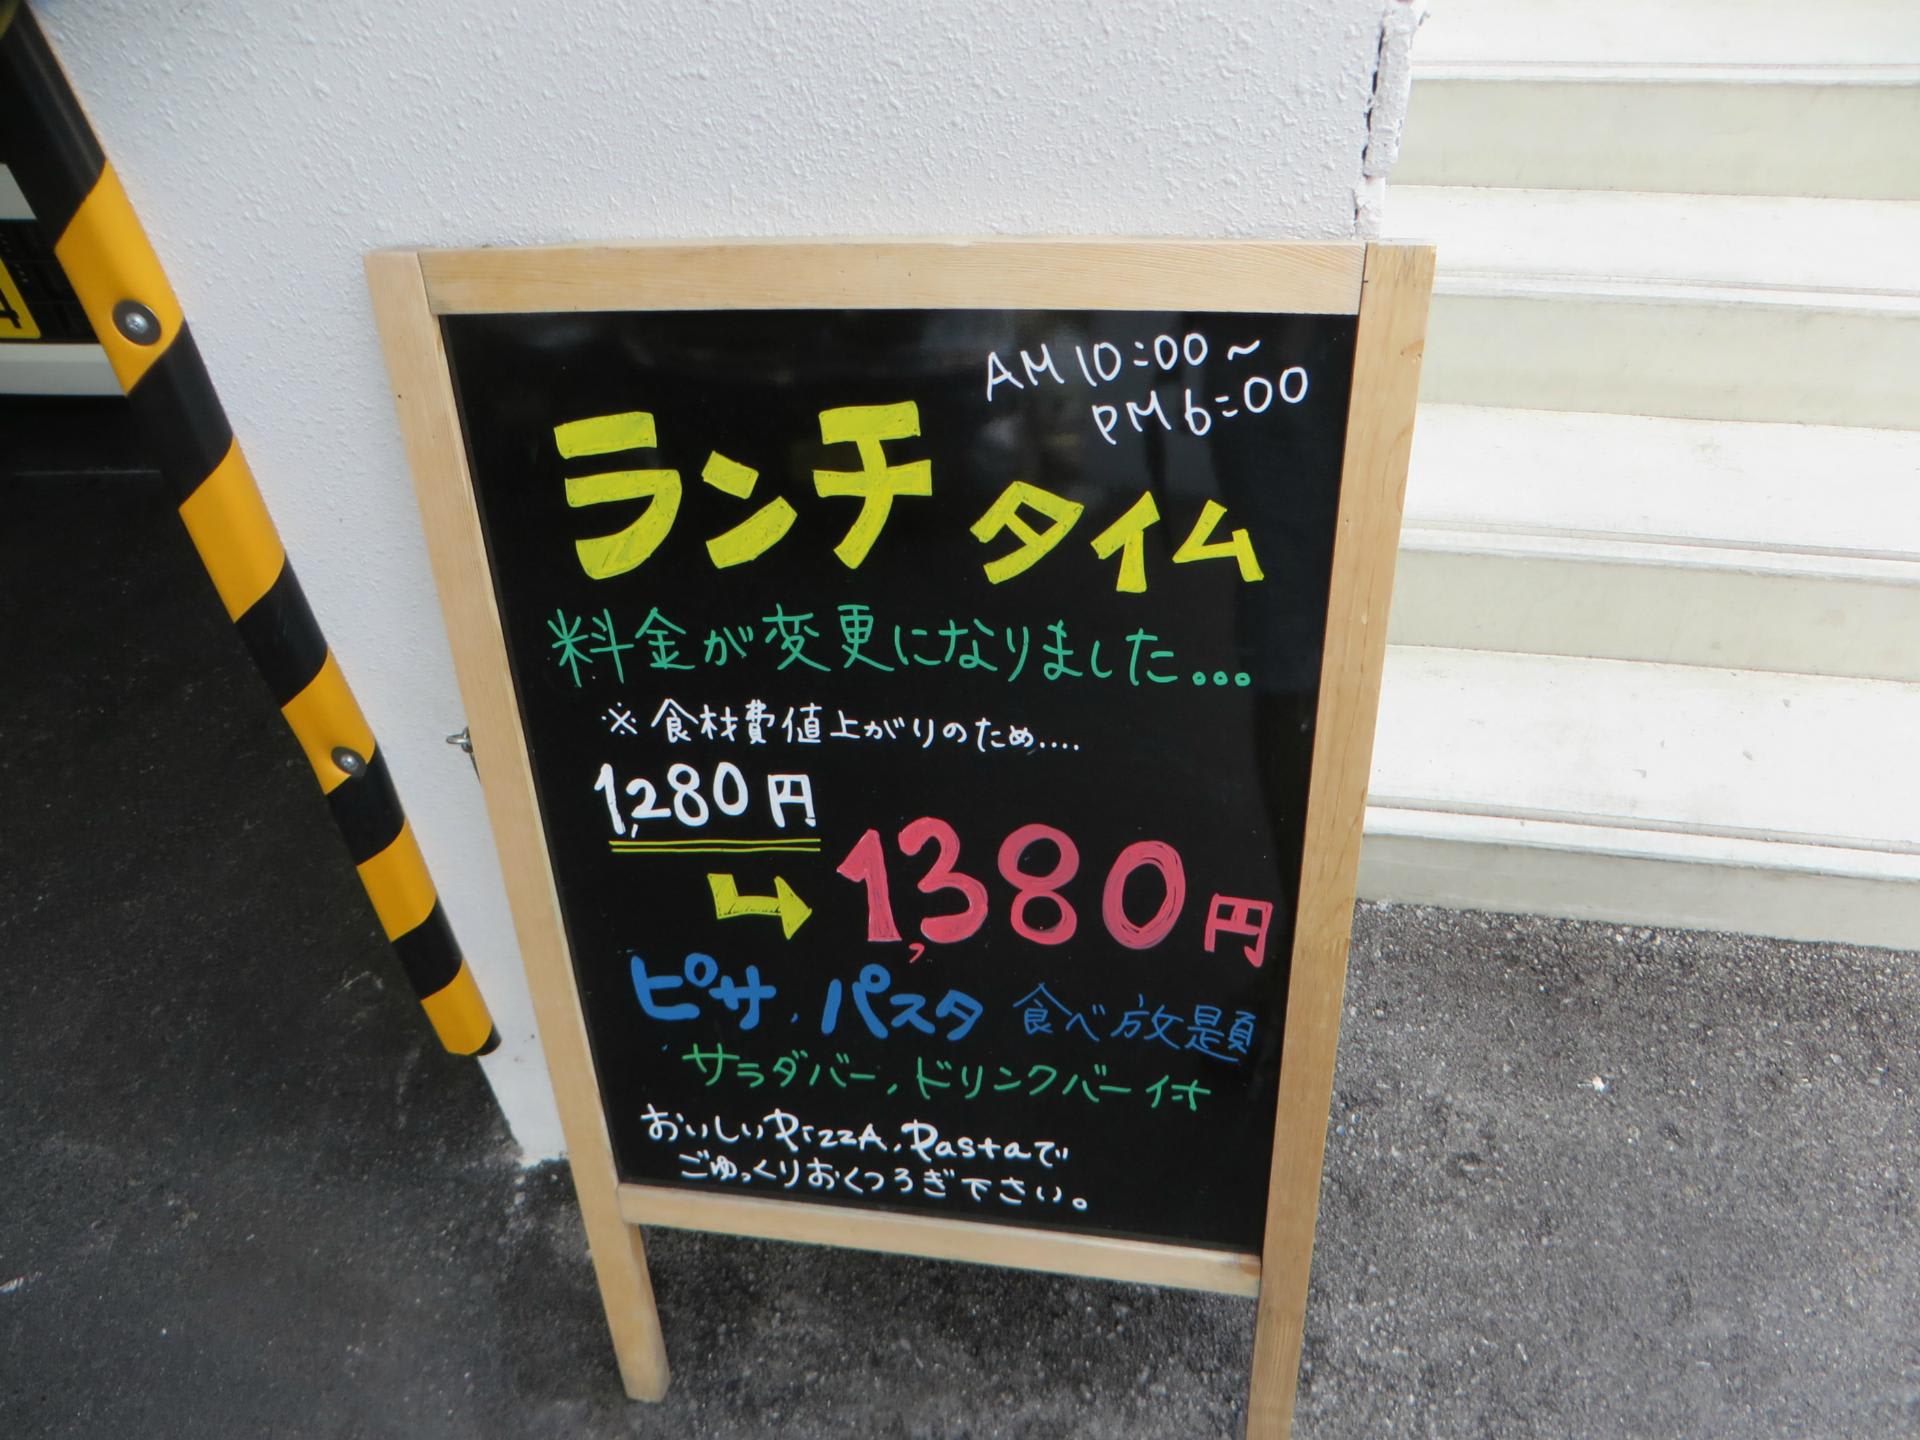 AM 10:00~
PM 6:00
ランチタイム
料金が変更になりました...
※食材費値上がりのため....
1,280円
1,380円
ピザ、パスタ 食べ放題
サラダバー、ドリンクバー付
おいしいPizzA、Pastaで
ごゆっくりおくつろぎ下さい。